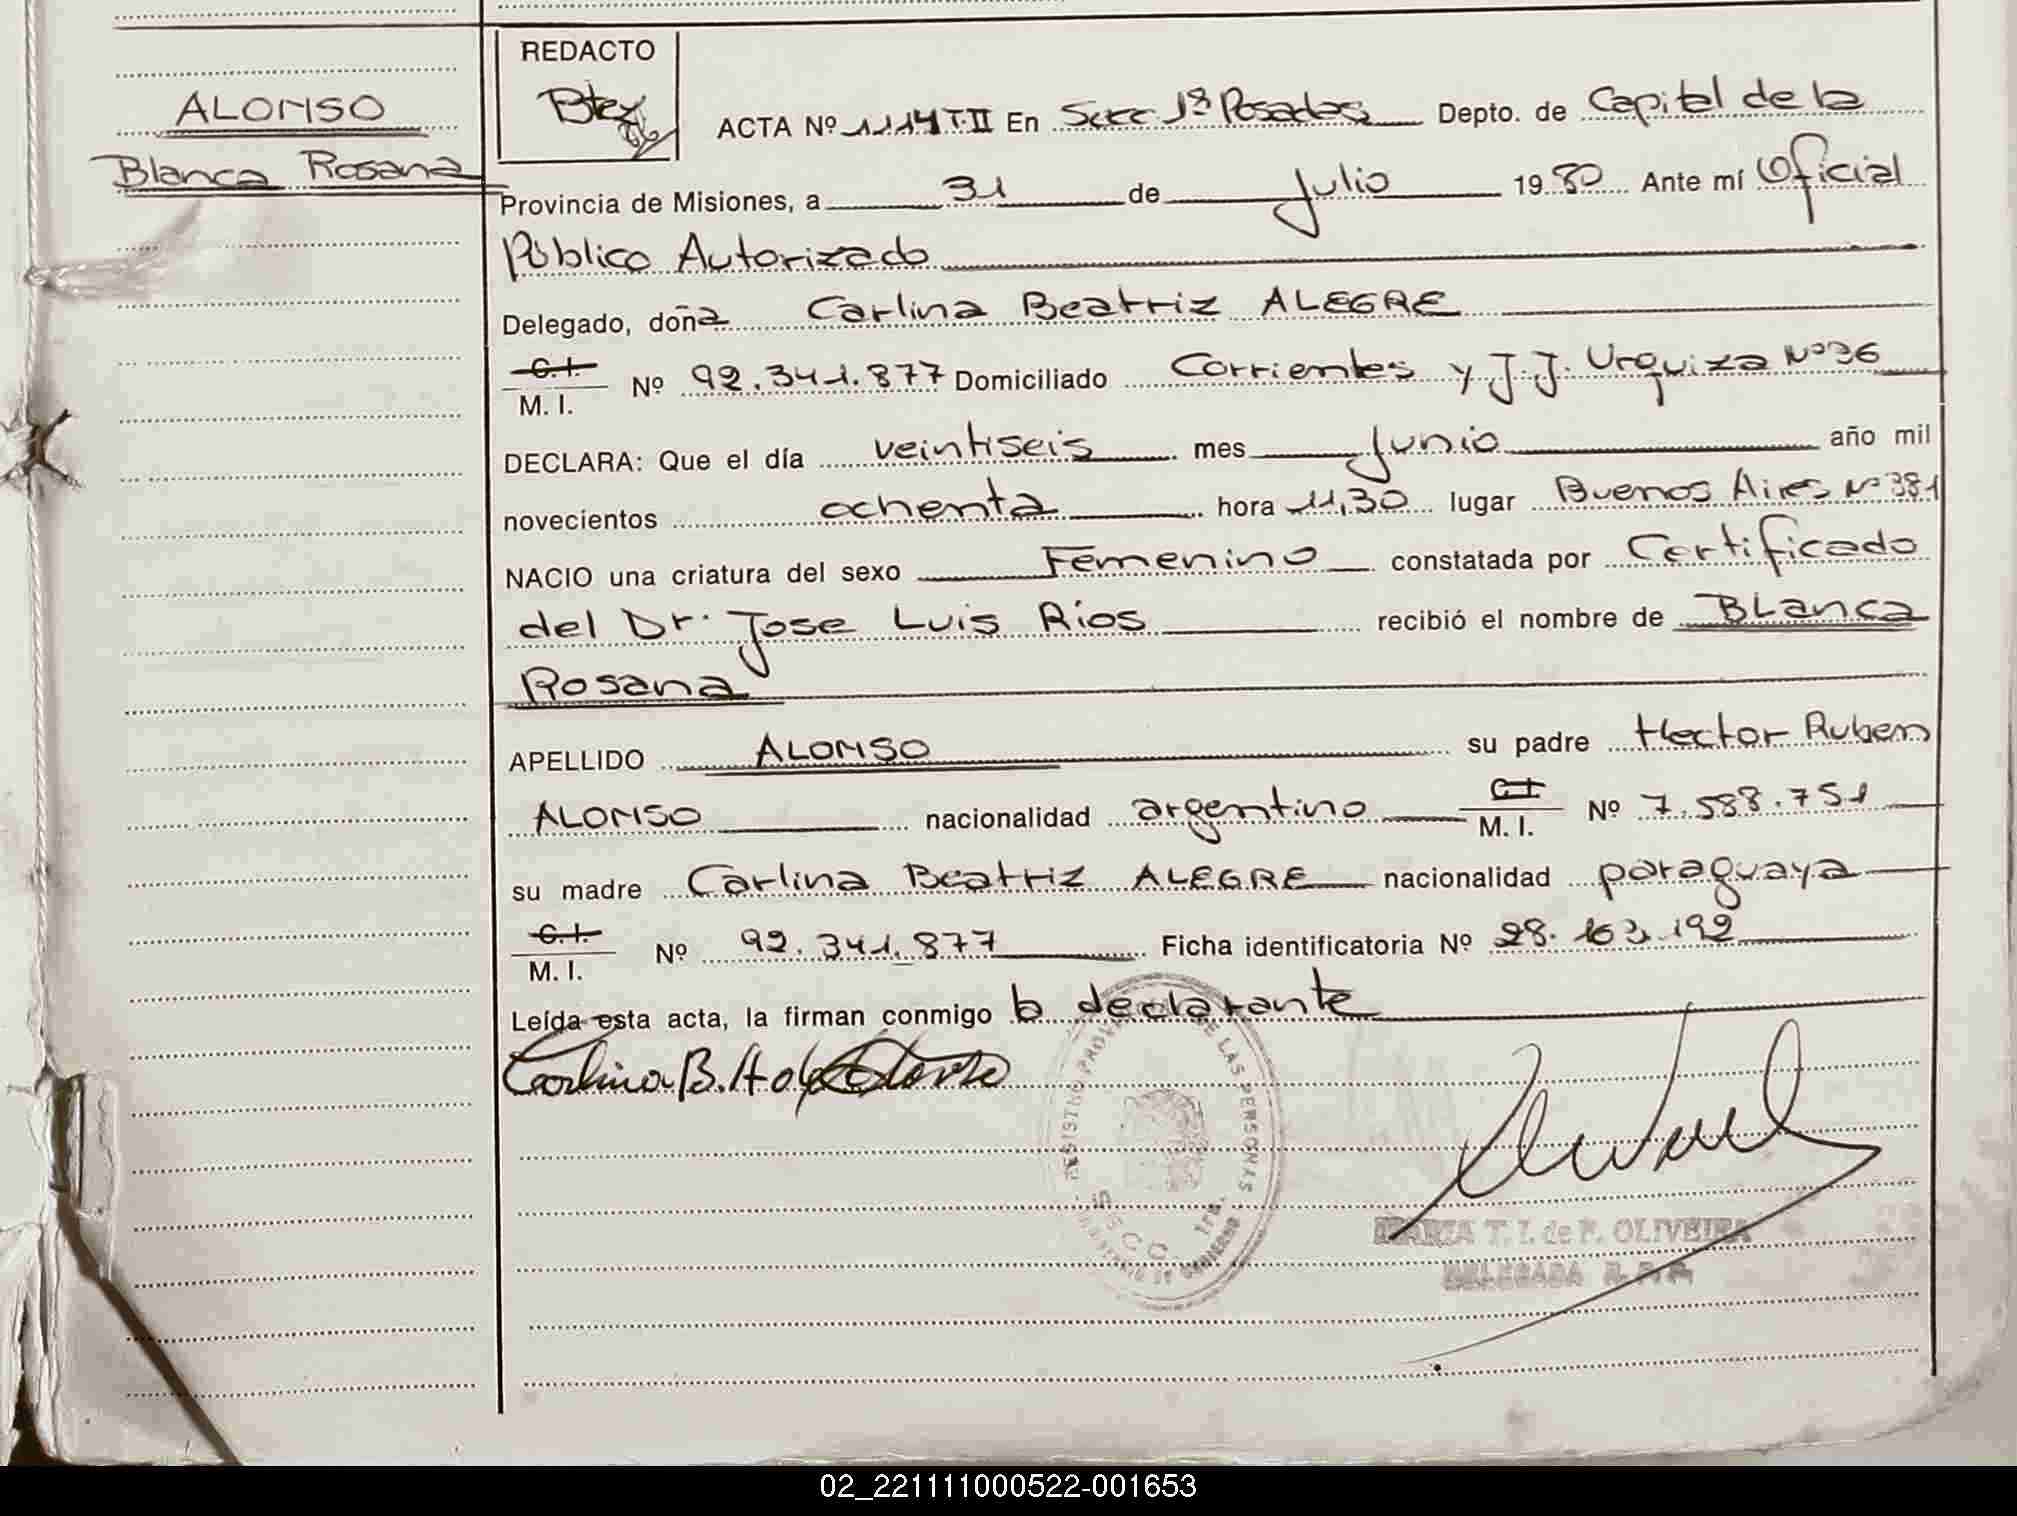 REDACTO
ALONSO
Blanca Rosana
ACTA Nº 1114 T.II En Secc 1ª Posadas Depto. de Capital de la
Provincia de Misiones, a 31 de Julio 1980 Ante mí Oficial
Público Autorizado
Delegado, doña Carlina Beatriz ALEGRE
C.I.
M. I. Nº 92.341.877 Domiciliado Corrientes y J.J. Urquiza Nº 36
DECLARA: Que el día veintiseis mes Junio año mil
novecientos ochenta hora 11,30 lugar Buenos Aires Nº 381
NACIO una criatura del sexo Femenino constatada por Certificado
del Dr. Jose Luis Ríos recibió el nombre de BLanca
Rosana
APELLIDO ALONSO su padre Hector Ruben
ALONSO nacionalidad argentino C.I. M. I. Nº 7.588.751
su madre Carlina Beatriz ALEGRE nacionalidad paraguaya
C.I.
M. I. Nº 92.341.877 Ficha identificatoria Nº 28.163.192
Leída esta acta, la firman conmigo la declarante
Carlina B. A. de Alonso
REGISTRO PROV DE LAS PERSONAS
SECC. 1ra.
MINISTERIO DE GOBIERNO
MARIA T. I. de F. OLIVEIRA
DELEGADA R. P. P.
02_221111000522-001653